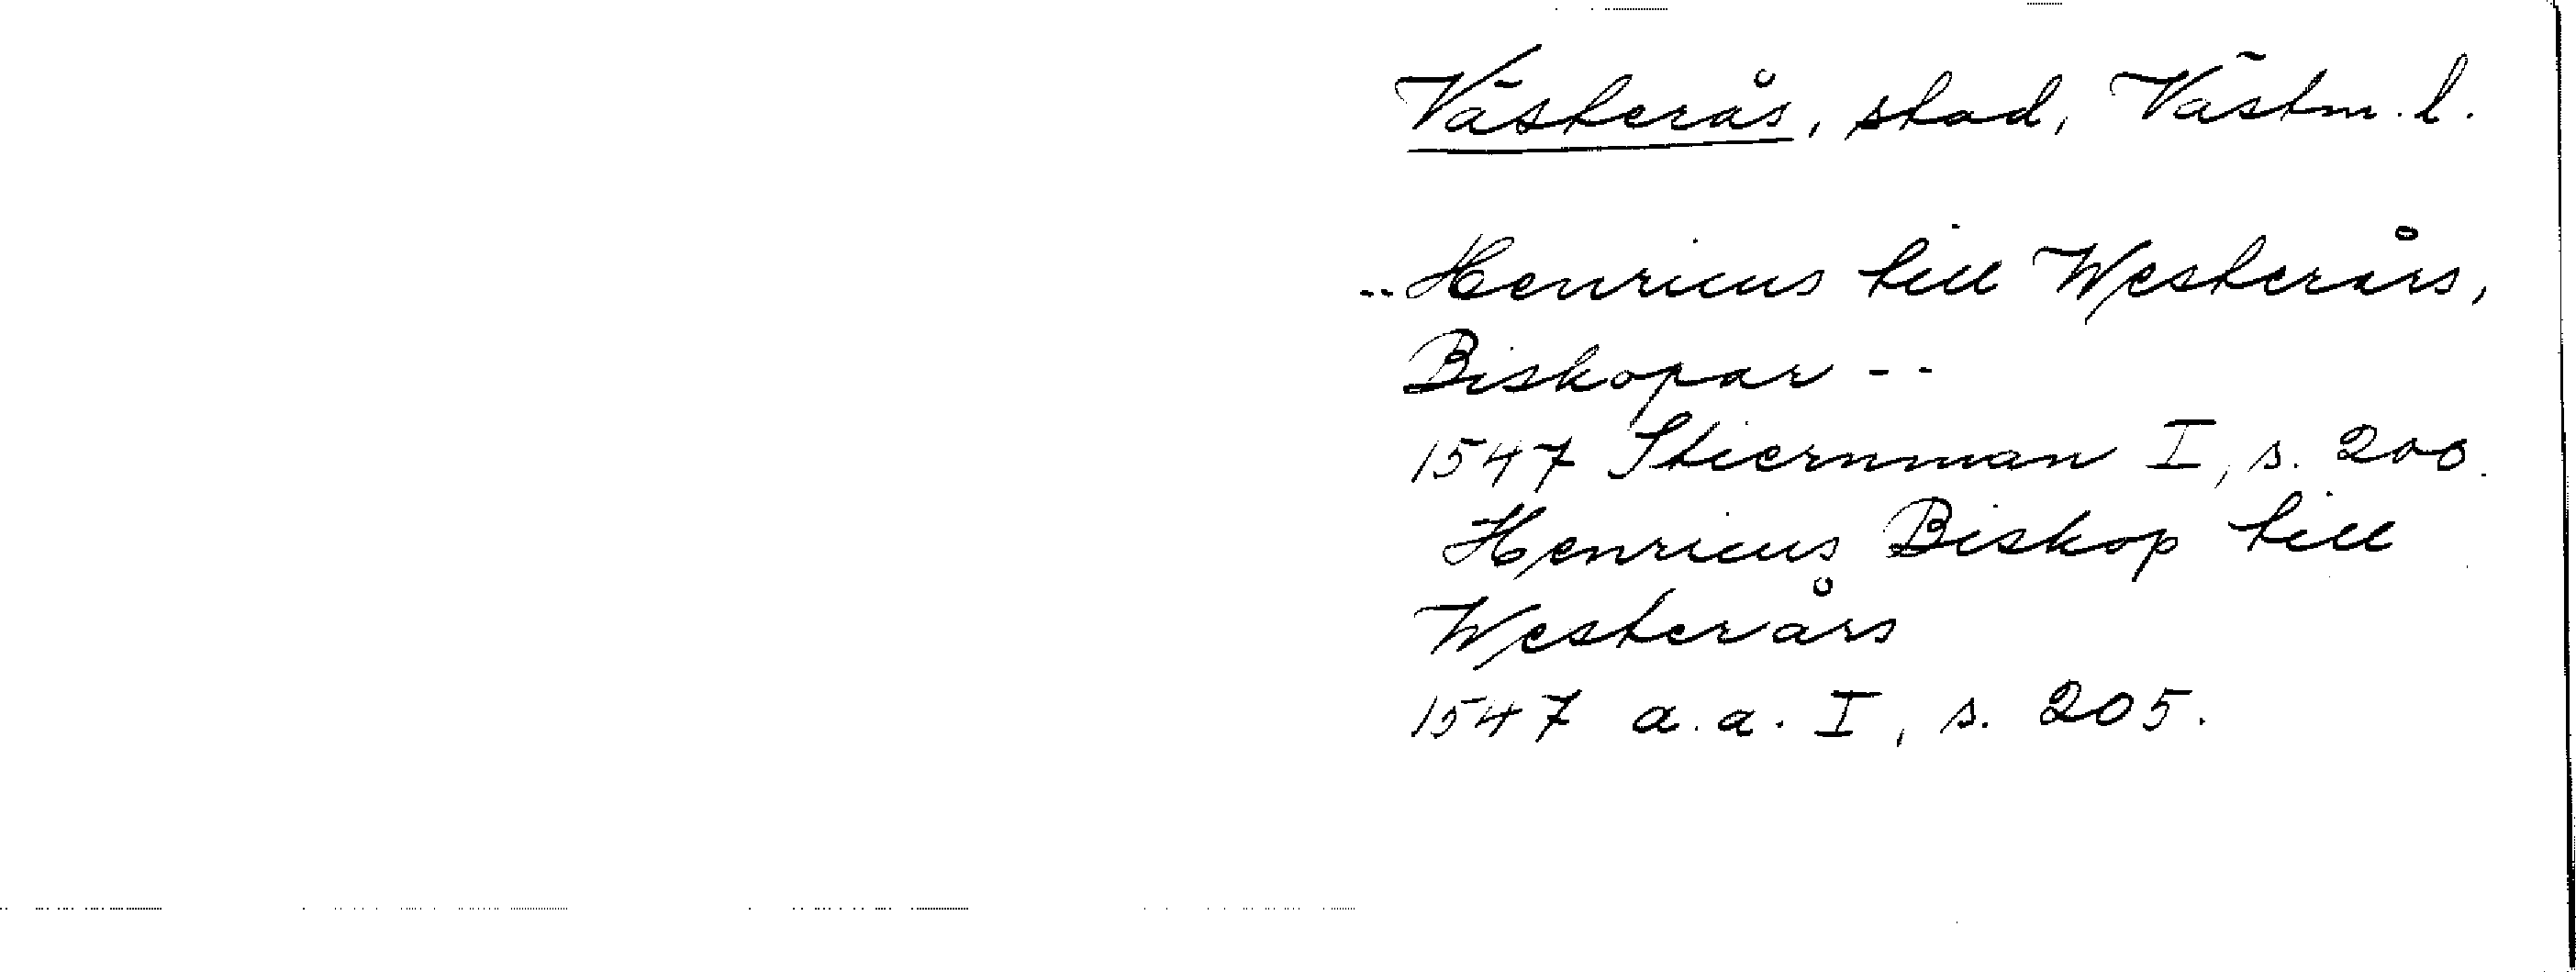 Västerås, stad, Västm. l.
-- Henricus till Westerårs,
Biskopar --
1547 Stiernman I, s. 200.
Henricus Biskop till
Westerårs
1547 a.a. I, s. 205.